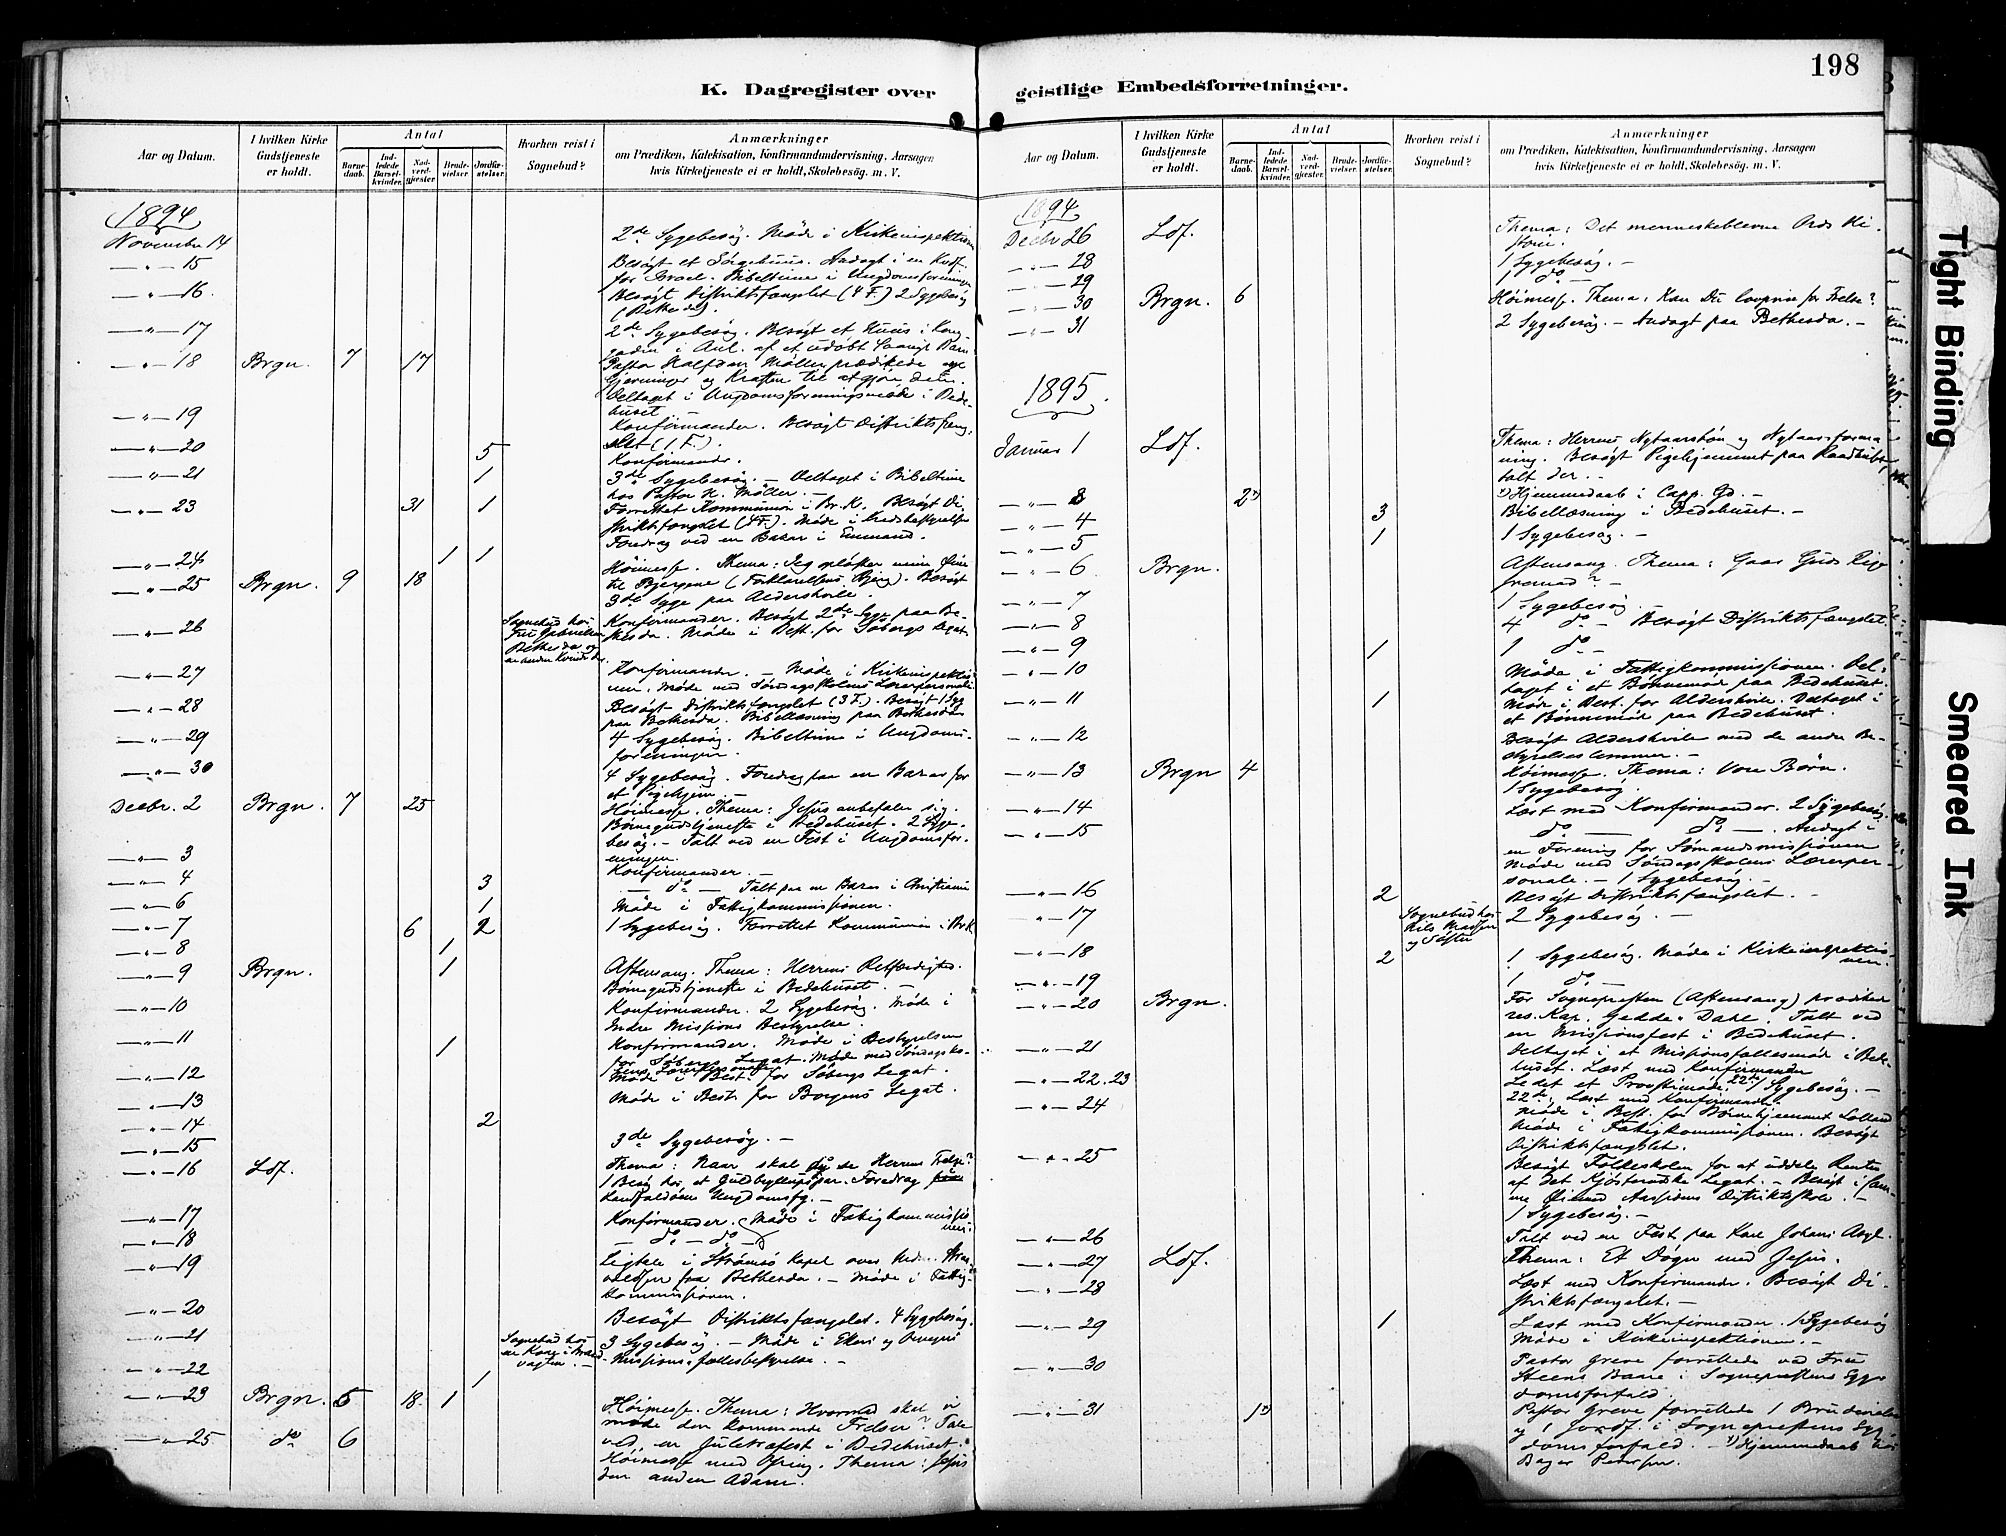 198
K. Dagregister over geistlige Embedsforretninger.
Aar og Datum.
I hvilken Kirke Gudstjeneste er holdt.
Antal
Barnedaab.
Indledede Barselkvinder.
Nadverdgjester.
Brudevielser.
Jordfæstelser.
Hvorhen reist i Sognebud?
Anmærkninger
om Prædiken, Katekisation, Konfirmandundervisning, Aarsagen
hvis Kirketjeneste ei er holdt, Skolebesög. m. V.
1894
November 14 2de Sygebesög. Møde i Kirkeinspektionen
— " — 15 Besögt et Sörgehuus. Andagt i en Kvdf.
for Israel. Bibeltime i Ungdomsforeningen
— " — 16. Besögt Distriktsfængslet (4 F.) 2 Sygebesög
(Bethesda).
— " — 17 2de Sygebesög. Besögt et Huus i
i Anl. af et udöbt
— " — 18 Brgn. 7 17 Pastor Halfdan Møller prædikede
Gjerninger og Kraften til at gjøre dem.
Deltaget i Ungdomsforeningsmøde i Bede-
huset
— " — 19 Konfirmander. Besögt Distriktsfæng-
slet (1 F.).
— " — 20 5 Konfirmander.
— " — 21 1 3de Sygebesög. — Deltaget i Bibeltime
hos Pastor H. Møller. —
— " — 23 31 1 Forrettet Kommunion i Br. K. Besögt Di-
striktsfængslet (4 F.). Møde i Kredsbestyrelse
Foredrag ved en Bazar i
— " — 24 1 1
— " — 25 Brgn. 9 18 Höimesse. Thema: Jeg opløfter mine Øine
til Bjergene (Forklarelsens Bjerg). Besögt
3de Syge paa Aldershvile.
— " — 26 Sognebud hos
Bethesda og
en anden Kvinde
Konfirmander. Besögt 2de Syge paa Be-
thesda. Møde i Best. for Søbergs Legat.
— " — 27 Konfirmander. — Møde i Kirkeinspektio-
nen. Møde med Søndagsskolens Lærerpersonale
— " — 28 Besögt Distriktsfængslet (3 F.). Besögt 1 Syg
paa Bethesda. Bibellæsning paa Bethesda
— " — 29 4 Sygebesög. Bibeltime i Ungdoms-
foreningen.
— " — 30 4 Sygebesög. Foredrag paa en Bazar for
et Pigehjem. —
Decbr. 2 Brgn. 7 25 Höimesse. Thema: Jesus anbefaler sig.
Börnegudstjeneste i Bedehuset. 2 Syge-
besög. — Talt ved en Fest i Ungdomsfor-
eningen.
— " — 3 Konfirmander. —
— " — 4 3 — do — Talt paa en Bazar i Christiania
— " — 6 1 Møde i Fattigkommissionen.
— " — 7 6 2 1 Sygebesög. Forrettet Kommunion i Br. K.
— " — 8 1
— " — 9 Brgn. 1 Aftensang. Thema: Herrens Retfærdighed.
Börnegudstjeneste i Bedehuset. —
— " — 10 Konfirmander. 2 Sygebesög. Møde i
Indre Missions Bestyrelse.
— " — 11 1 Konfirmander. Møde i Bestyrelsen
for Søbergs Legat. Møde med Søndagssko-
lens Lærerpersonale
— " — 12 Møde i Best. for Søbergs Legat.
— " — 13 Møde i Best. for Borgens Legat.
— " — 14 2
— " — 15 3de Sygebesög. —
— " — 16 Ldf. Thema: Naar skal du se Herrens Frelse?
1 Besög hos et Guldbryllupspar. Foredrag
Ungdomsfg. —
— " — 17 Konfirmander. Møde i Fattigkommissio-
nen.
— " — 18 — do — do —
— " — 19 Ligtale i Strömsö Kapel over
fra Bethesda. — Møde i Fattig-
kommissionen.
— " — 20 Besögt Distriktsfængslet. 4 Sygebesög.
— " — 21 Sognebud hos
en Kone i
3 Sygebesög. — Møde i Ekers og
Missions-fællesbestyrelse. —
— " — 22 1
— " — 23 Brgn. 5 18. 1 Höimesse. Thema: Hvormed skal vi
møde den kommende Frelser? Tale
ved en Juletræfest i Bedehuset.
— " — 25 do 6 Höimesse med Ofring. Thema: Jesus
den anden Adam.
Aar og Datum.
I hvilken Kirke Gudstjeneste er holdt.
Antal
Barnedaab.
Indledede Barselkvinder.
Nadverdgjester.
Brudevielser.
Jordfæstelser.
Hvorhen reist i Sognebud?
Anmærkninger
om Prædiken, Katekisation, Konfirmandundervisning, Aarsagen
hvis Kirketjeneste ei er holdt, Skolebesög. m. V.
1894
Decbr 26 Ldf. Thema: Det menneskeblevne Ords Hi-
storie.
— " — 28 1 Sygebesög. —
— " — 29 1 do —
— " — 30 Brgn. 6 Höimesse. Thema: Kan Du lovprise for Frelse?
— " — 31 2 Sygebesög. — Andagt paa Bethesda. —
1895.
Januar 1 Ldf. Thema: Herrens Nytaarsbön og Nytaarsforma-
ning. Besögt Pigehjemmet paa
talt der. —
— " — 3 2*) *) Hjemmedaab i Capp. Gd. —
— " — 4 3 Bibellæsning i Bedehuset. —
— " — 5 1 1 Sygebesög. —
— " — 6 Brgn. Aftensang. Thema: Gaar Guds Rige
fremad? —
— " — 7 1 Sygebesög. —
— " — 8 4 do — Besögt Distriktsfængslet.
— " — 9 1 1 do —
— " — 10 Møde i Fattigkommissionen. Del-
taget i et Bönnemøde paa Bedehuset.
— " — 11 1 Møde i Best. for Aldershvile. Deltaget i
et Bönnemøde paa Bedehuset.
— " — 12 Besögt Aldershvile med de andre Be-
styrelseslemmer. —
— " — 13 Brgn 4 Höimesse. Thema: Vore Börn.
1 Sygebesög.
— " — 14 Læst med Konfirmander. 2 Sygebesög.
— " — 15 — do — do —. Andagt i
en Forening for Sömandsmissionen
Møde med Söndagsskolens Lærerper-
sonale. — 1 Sygebesög. —
— " — 16 2 Besögt Distriktsfængslet. —
— " — 17 Sognebud hos
Nils Madsen
og Söster
2 Sygebesög. —
— " — 18 2 1 Sygebesög. Møde i Kirkeinspektio-
nen.
— " — 19 1 do —
— " — 20 Brgn. For Sognepresten (Aftensang) prædiket
res. Kap. Gedde-Dahl. Talt ved
en Missionsfest i Bedehuset.
— " — 21 Deltaget i et Missionsfællesmøde i Bede-
huset. Læst med Konfirmander
— " — 22. 23 Ledet et Provstimøde. 22de 1 Sygebesög. —
22de: Læst med Konfirmander.
— " — 24 Møde i Best. for Børnehjemmet Solland
Møde i Fattigkommissionen. Besögt
Distriktsfængslet.
— " — 25 Besögt Folkeskolen for at uddele Renter
af det Kjösterudske Legat. — Besögt i sam-
me Øiemed Aassidens Distriktsskole. —
1 Sygebesög. —
— " — 26 Talt ved en Fest paa Karl Johans Asyl.
— " — 27 Ldf. Thema: Et Døgn med Jesus.
— " — 28 Læst med Konfirmander. Besögt Di-
striktsfængslet. —
— " — 29 1 Læst med Konfirmander. 1 Sygebesög
Møde i Kirkeinspektionen. —
— " — 30 Pastor Greve forrettede ved Fru
Steens Baare i Sogneprestens Syge-
domsforfald.
— " — 31 1*) Pastor Greve forrettede 1 Brudevielse
og 1 Jordf. i Sogneprestens Syg-
domsforfald. — *) Hjemmedaab hos
Bager Pedersen.
Tight Binding
Smeared Ink